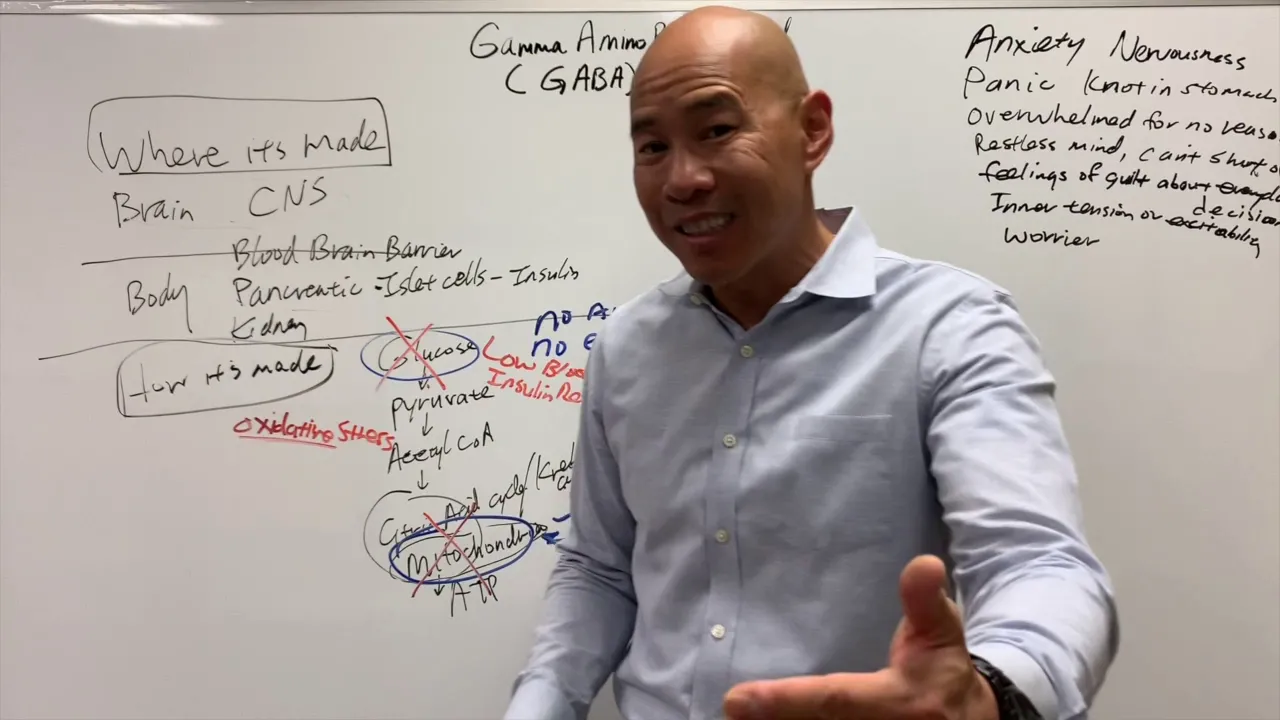 Gamma Amino
(GABA)
Where its made
Brain CNS
Blood Brain Barrier
Body Pancreatic - Islet cells - Insulin
Kidney
How its made
Glucose
no
no
Low
Insulin
Pyruvate
Oxidative Stress
Acetyl CoA
Citric Acid cycle
Mitochondria
ATP
Anxiety Nervousness
Panic Knot in stomach
Overwhelmed for no
Restless mind, can't shut
feelings of guilt about
decision
Inner tension or excitability
worrier